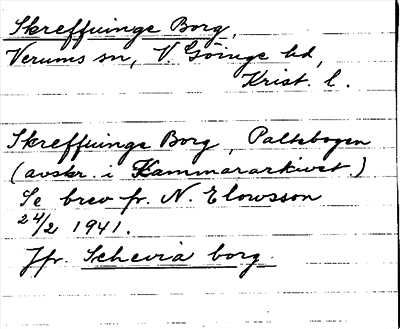 Skreffuinge Borg,
Verums sn, V. Göinge hd,
Krist. l.
Skreffuinge Borg, Paltebogen
(avskr. i Kammararkivet.)
Se brev fr. N. Elowsson
24/2 1941.
Jfr. Schevia borg.